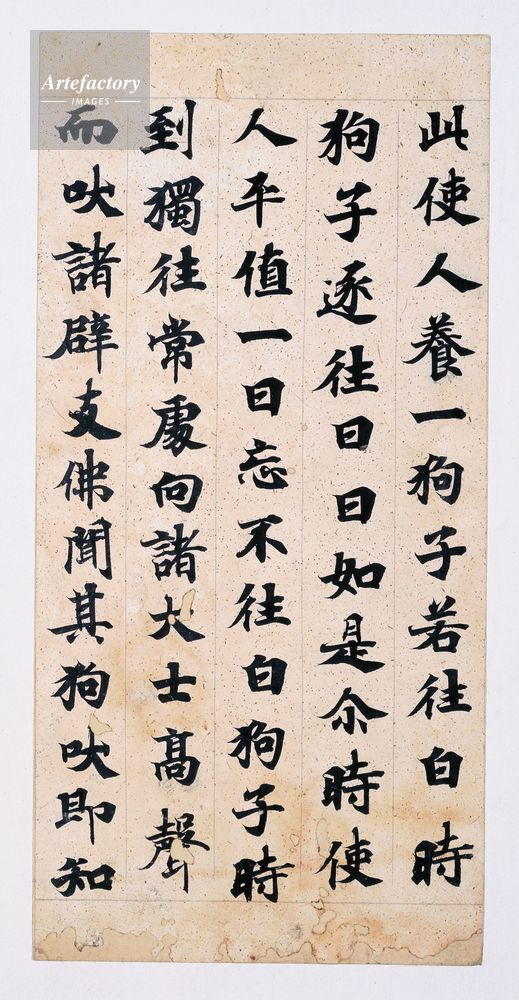 此使人養一狗子若往白時
狗子逐往日日如是尒時使
人平值一日忘不往白狗子時
到獨往常處向諸大士高聲
而吠諸辟支佛聞其狗吠即知
Artefactory
IMAGES